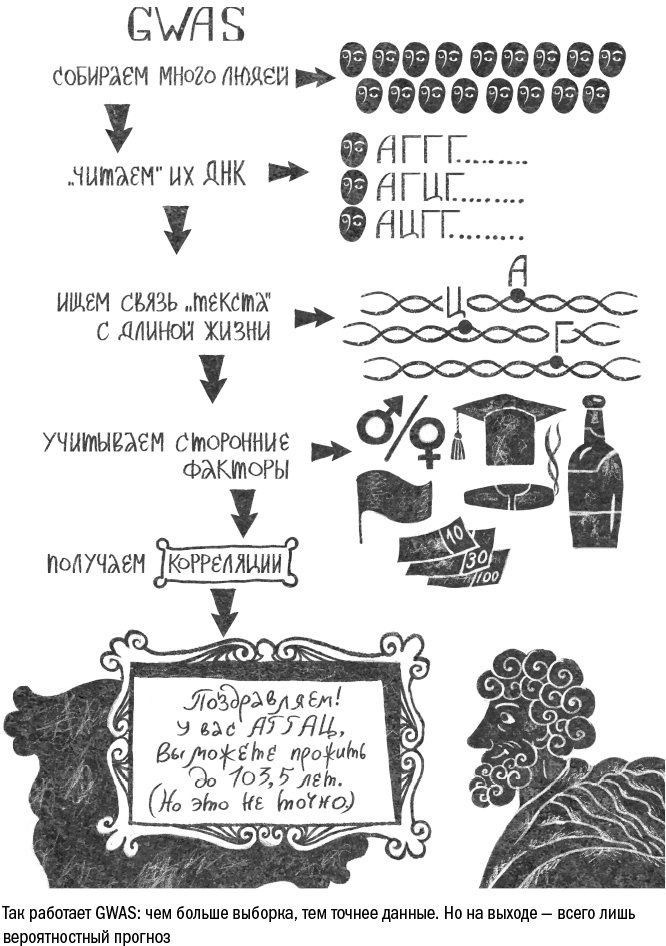 GWAS
СОБИРАЕМ МНОГО ЛЮДЕЙ
„ЧИТАЕМ“ ИХ ДНК
АГГГ.........
АГЦГ.........
АЦГГ.........
ИЩЕМ СВЯЗЬ „ТЕКСТА“
С ДЛИНОЙ ЖИЗНИ
А
Ц
Г
УЧИТЫВАЕМ СТОРОННИЕ
ФАКТОРЫ
10
30
100
ПОЛУЧАЕМ КОРРЕЛЯЦИИ
Поздравляем!
У вас АГГАЦ,
Вы можете прожить
до 103,5 лет.
(Но это не точно.)
Так работает GWAS: чем больше выборка, тем точнее данные. Но на выходе — всего лишь
вероятностный прогноз